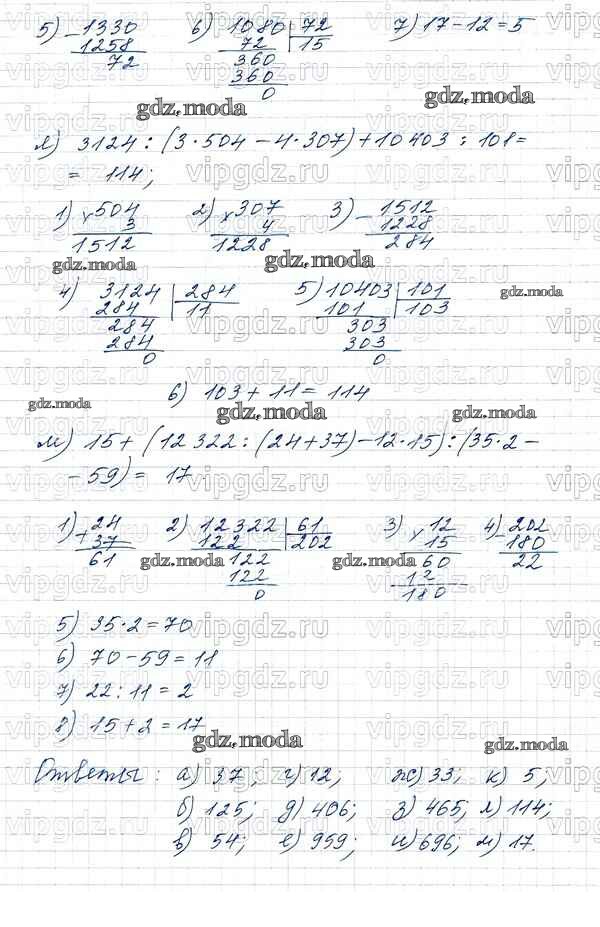 5) - 1330 6) 1080 | 72 7) 17 - 12 = 5
1258 72 15
72 360
360
0
gdz.moda gdz.moda
л) 3124 : (3 · 504 - 4 · 307) + 10403 : 101 =
= 114;
1) × 504 2) × 307 3) - 1512
3 4 1228
1512 1228 284
gdz.moda gdz.moda
4) 3124 | 284 5) 10403 | 101 gdz.moda
284 11 101 103
284 303
284 303
0 0
6) 103 + 11 = 114
gdz.moda gdz.moda gdz.moda
м) 15 + (12322 : (24 + 37) - 12 · 15) : (35 · 2 -
- 59) = 17
1) + 24 2) 12322 | 61 3) × 12 4) - 202
37 122 202 15 180
61 122 60 22
122 12
0 180
gdz.moda gdz.moda
5) 35 · 2 = 70
6) 70 - 59 = 11
7) 22 : 11 = 2
8) 15 + 2 = 17
gdz.moda gdz.moda
Ответы : а) 37, г) 12, ж) 33; к) 5;
б) 125; д) 406; з) 465, л) 114;
в) 54; е) 959; и) 696, м) 17.
vipgdz.ru